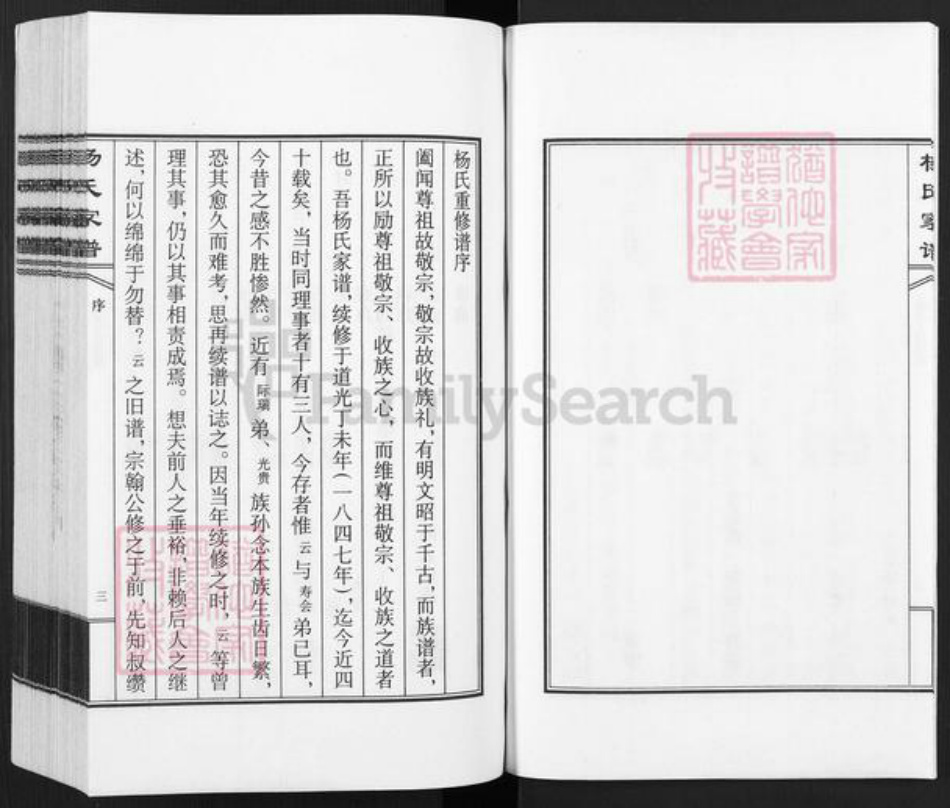 杨氏家谱
杨氏重修谱序
阖闻尊祖故敬宗,敬宗故收族礼,有明文昭于千古,而族谱者,
正所以励尊祖敬宗、收族之心,而维尊祖敬宗、收族之道者
也。吾杨氏家谱,续修于道光丁未年(一八四七年),迄今近四
十载矣,当时同理事者十有三人,今存者惟云与寿会弟已耳,
今昔之感不胜惨然。近有际瑞弟、光贵族孙念本族生齿日繁,
恐其愈久而难考,思再续谱以志之。因当年续修之时,云等曾
理其事,仍以其事相责成焉。想夫前人之垂裕,非赖后人之继
述,何以绵绵于勿替?云之旧谱,宗翰公修之于前,先知叔缵
杨氏家谱
序
三
FamilySearch